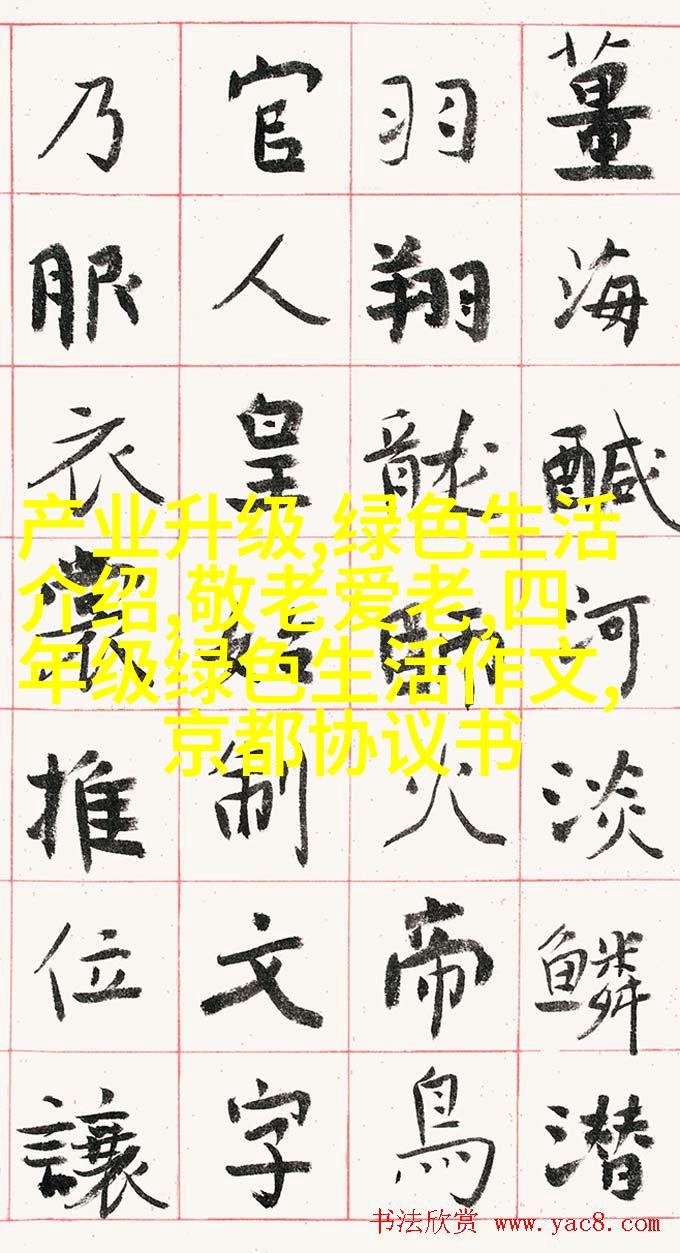 薑海醎河淡鱗潛
羽翔龍師火帝鳥
官人皇始制文字
乃服衣裳推位讓
产业升级,绿色生活
介绍,敬老爱老,四
年级绿色生活作文,
京都协议书
书法欣赏 www.yac8.com